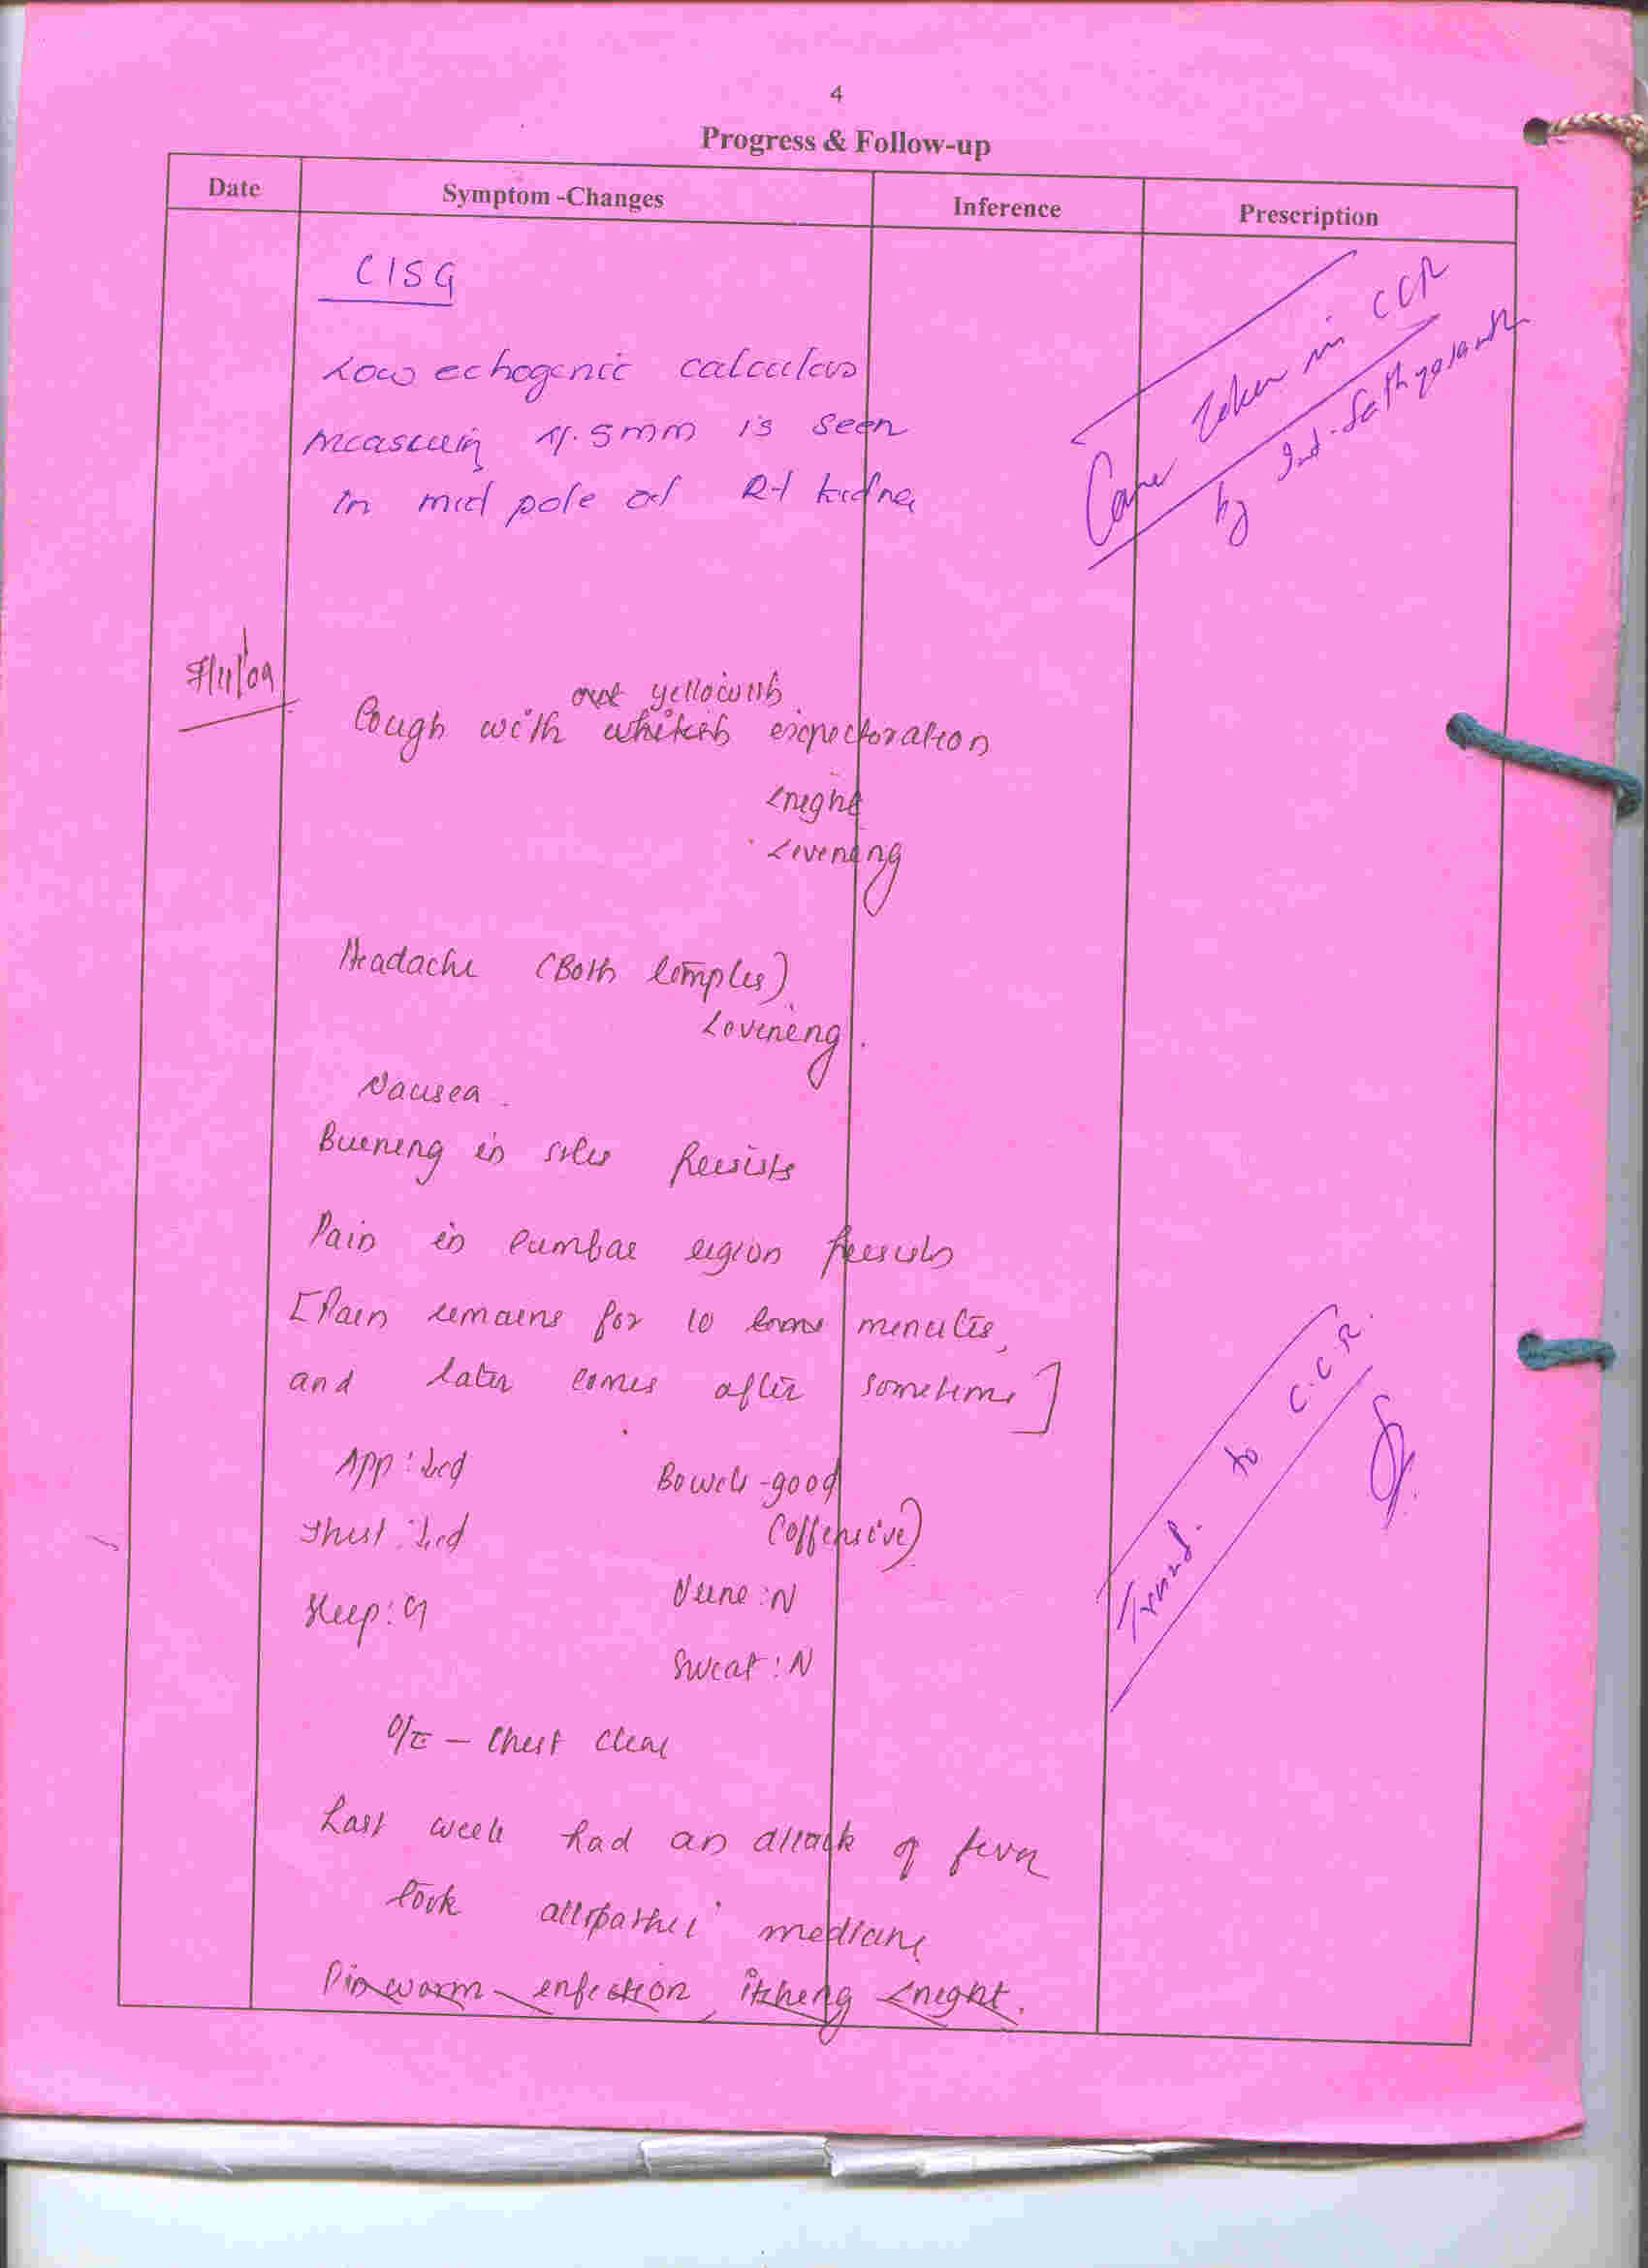 4
Progress & Follow-up
Date Symptom -Changes Inference Prescription
USG
Low echogenic calculus
measuring 4.5mm is seen
in mid pole of Rt kidne
Case taken in CCR
by
/11/09
and yellowish
Cough with whitish expectoration
<night
<evening
Headache (Both temples)
<evening.
Nausea.
Burning in soles Persists
Pain in lumbar region persists
[Pain remains for 10 minutes,
and later comes after sometime]
App: Bowels -good
Thirst: (offensive)
Sleep: G Urine: N
Sweat: N
Transd. to C.C.R.
O/E - Chest clear
Last week had an attack of fever
took allopathic medicine
Pinworm infection, itching <night.